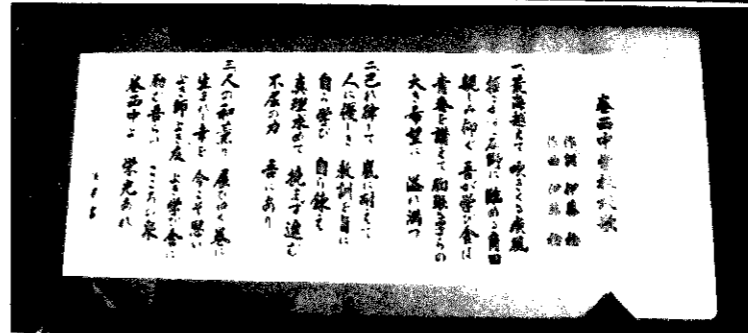 巻西中学校校歌
作詞 伊藤
作曲 伊藤
一、荒海越えて 吹きくる疾風
に 臨める角田
親しみ仰ぐ 吾が学び舎は
青春を讃えて 胸張る子らの
大き希望に 溢れ満つ
二、己れ律して 嵐に耐えて
人に優しき 教訓を旨に
自ら学び 自ら鍊え
真理求めて 撓まず進む
不屈の力 吾にあり
三、人の和 薫り 展びゆく巻に
生まれし幸を 今こそ思い
よき師よき友 よき学び舎に
こころの泉
巻西中よ 栄光あれ